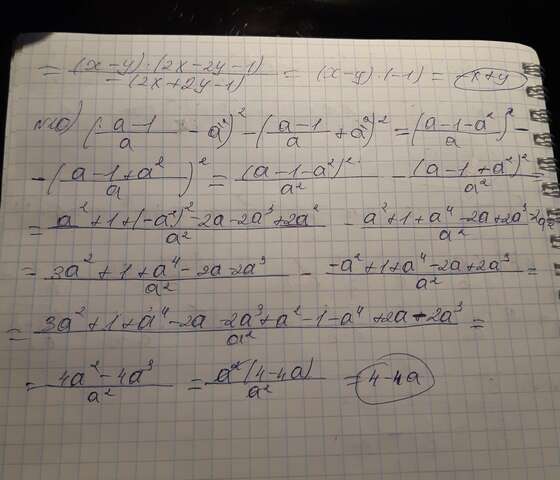 = (x-y)·(2x-2y-1) / -(2x+2y-1) = (x-y)·(-1) = -x+y
N20) (a-1/a - a)² - (a-1/a + a)² = (a-1-a²/a)² -
- (a-1+a²/a)² = (a-1-a²)²/a² - (a-1+a²)²/a² =
= a²+1+(-a²)²-2a-2a³+2a²/a² - a²+1+a⁴-2a+2a³-2a²/a² =
= 3a²+1+a⁴-2a-2a³/a² - -a²+1+a⁴-2a+2a³/a² =
= 3a²+1+a⁴-2a-2a³+a²-1-a⁴+2a-2a³/a² =
= 4a²-4a³/a² = a²(4-4a)/a² = 4-4a